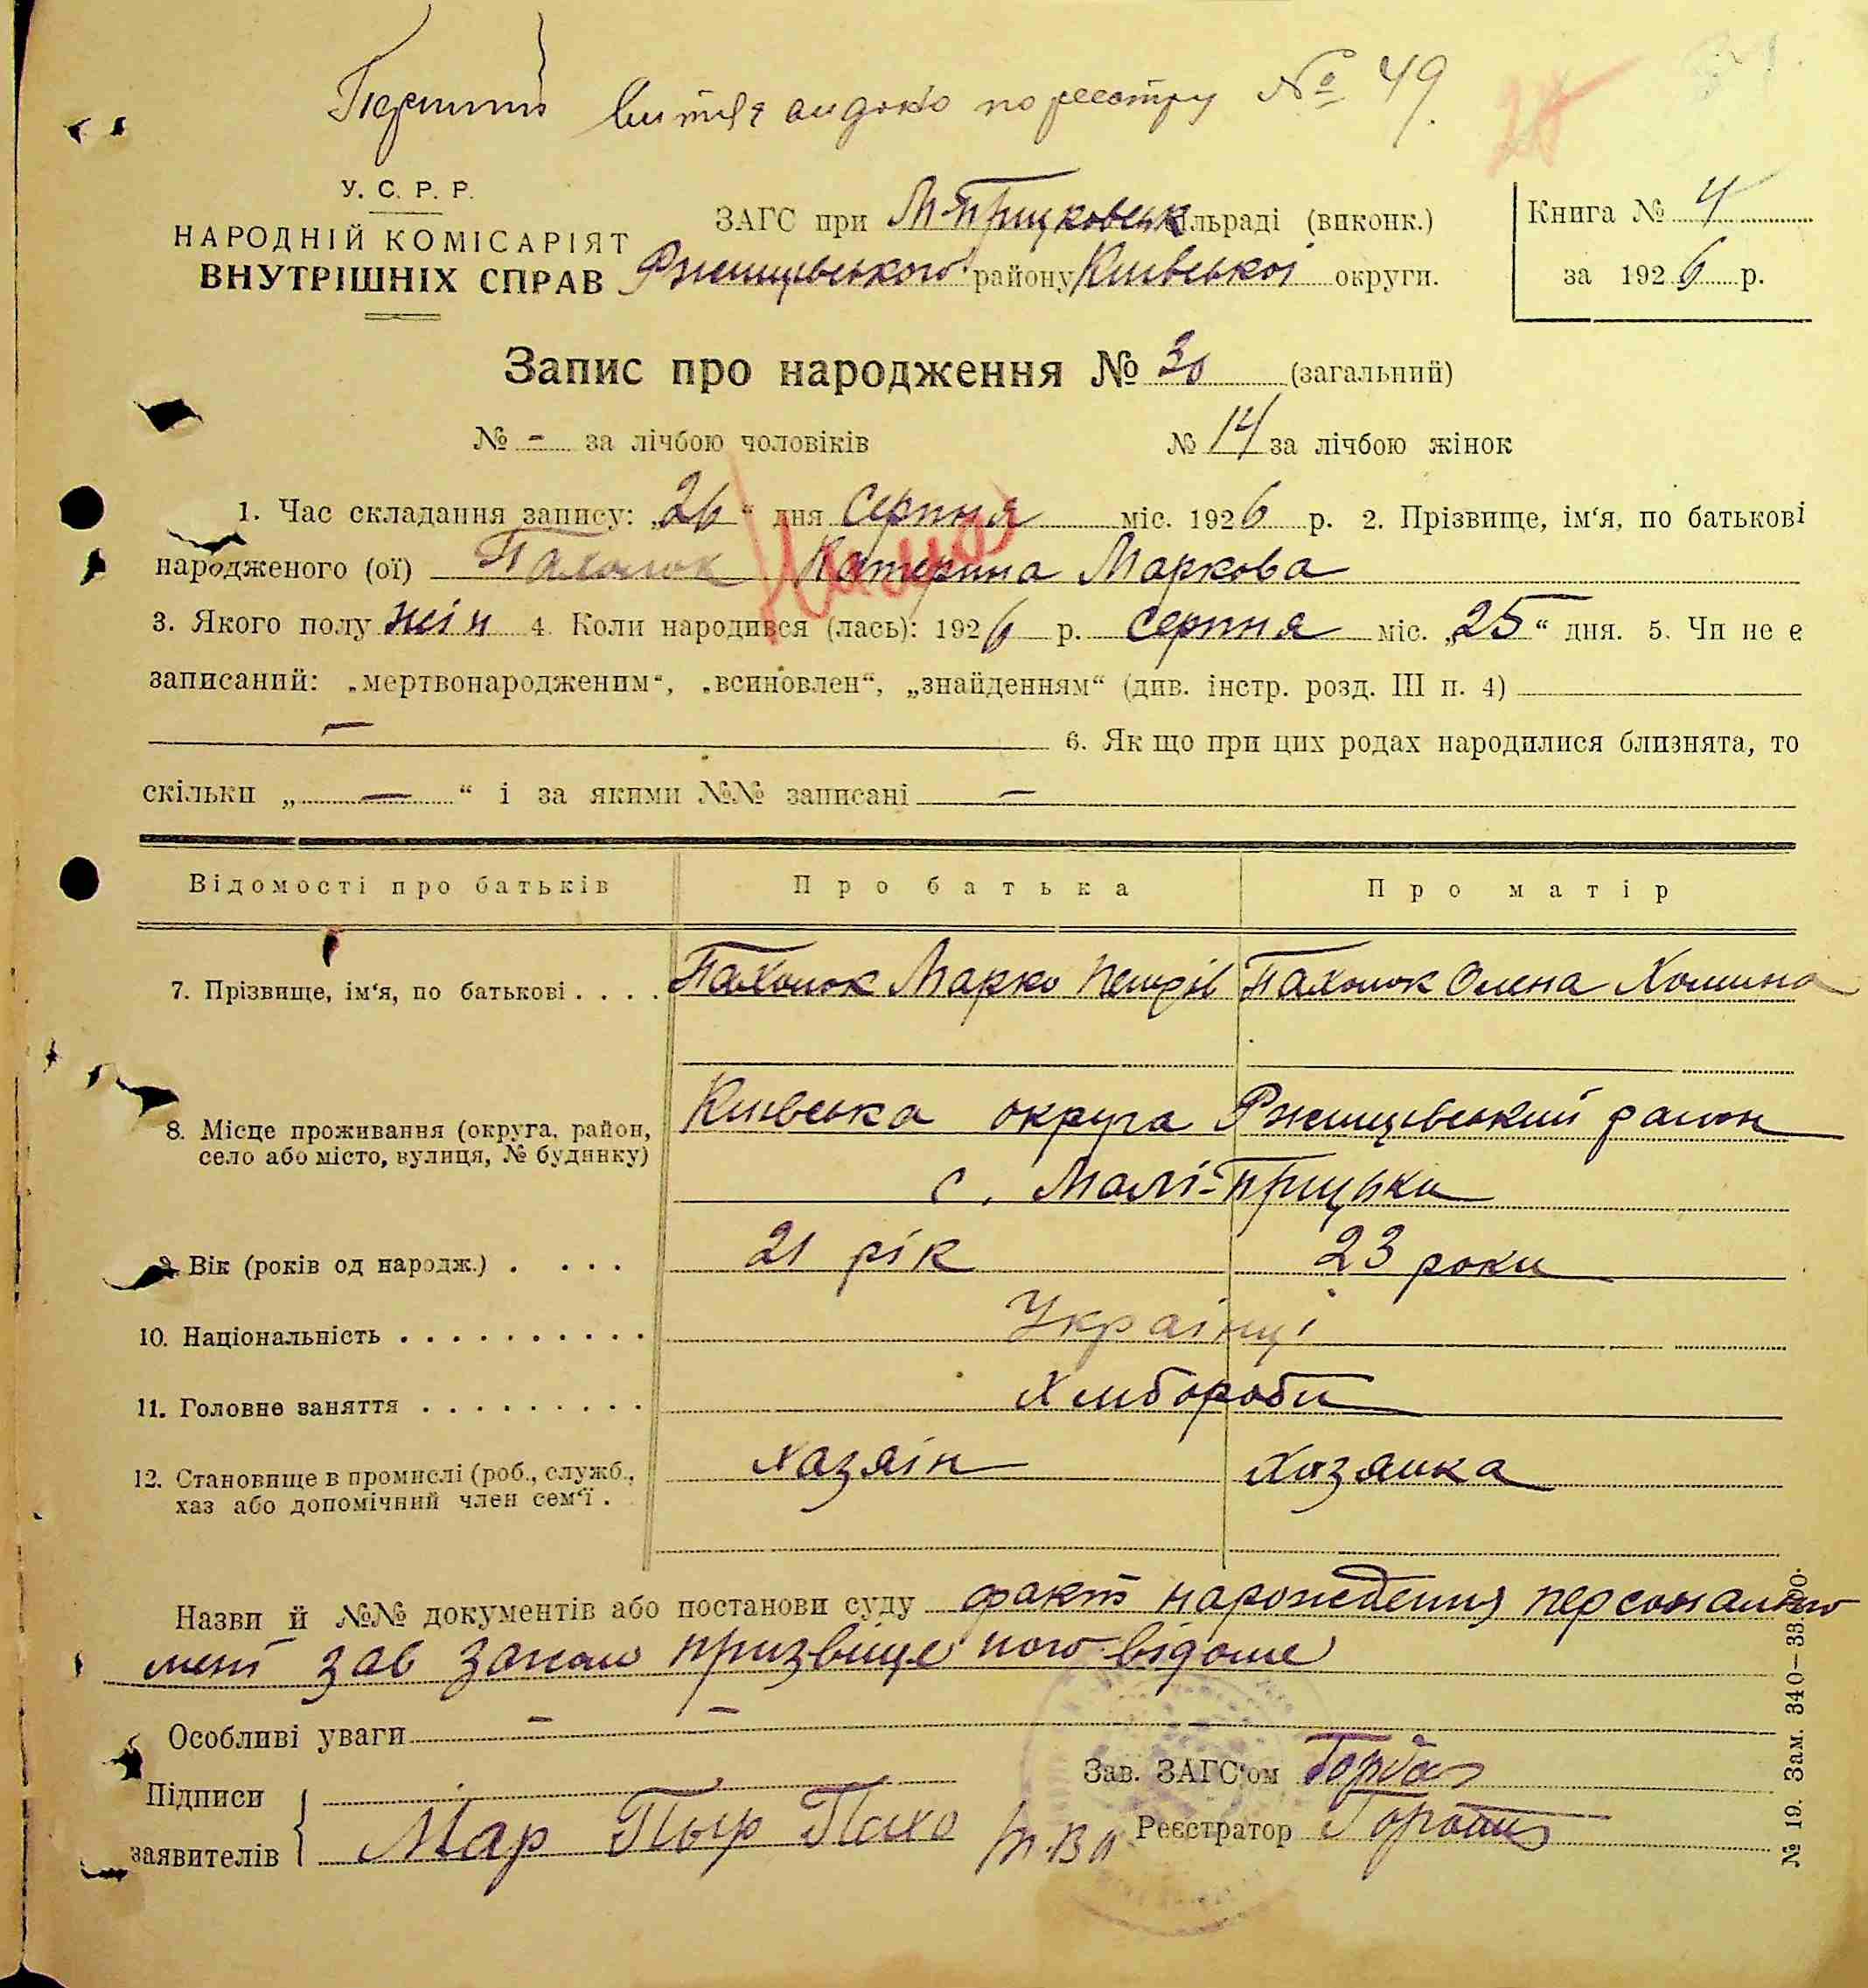 Перший витяг видано по реєстру № 49.
У. С. Р. Р.
НАРОДНІЙ КОМІСАРІЯТ
ВНУТРІШНІХ СПРАВ
ЗАГС при М-Прицковськ ільраді (виконк.)
Ржищівського району Київської округи.
Книга № 4
за 1926 р.
Запис про народження № 30 (загальний)
№ - за лічбою чоловіків № 14 за лічбою жінок
1. Час складання запису: „26“ дня серпня міс. 1926 р. 2. Прізвище, ім‘я, по батькові
народженого (ої) Пахолок Катерина Маркова
3. Якого полу жін 4. Коли народився (лась): 1926 р. серпня міс. „25“ дня. 5. Чи не є
записаний: „мертвонародженим“, „всиновлен“, „знайденням“ (див. інстр. розд. III п. 4)
— 6. Як що при цих родах народилися близнята, то
скільки „ — “ і за якими №№ записані —
Відомості про батьків Про батька Про матір
7. Прізвище, ім‘я, по батькові . . . . Пахолок Марко Петрів Пахолок Олена Хомина
8. Місце проживання (округа, район, Київська округа Ржищівський район
село або місто, вулиця, № будинку)
с. Малі-Прицьки
9. Вік (років од народж.) . . . . 21 рік 23 роки
10. Національність . . . . . . . . . . Українці
11. Головне заняття . . . . . . . . . Хлібороби
12. Становище в промислі (роб., служб., хазяїн Хазяйка
хаз або допомічний член сем‘ї .
Назви й №№ документів або постанови суду факт нарождения персонально
мені зав загсом призвіще його відоме
Особливі уваги - -
Підписи
заявителів Мар Пыр Пахо
Зав. ЗАГС‘ом
Реєстратор
№ 19. Зам. 340—33.000.